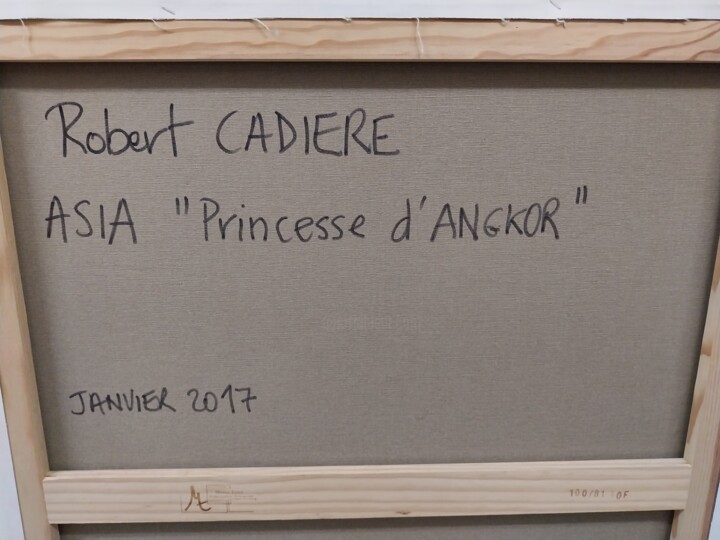 Robert CADIERE
ASIA "Princesse d'ANGKOR"
JANVIER 2017